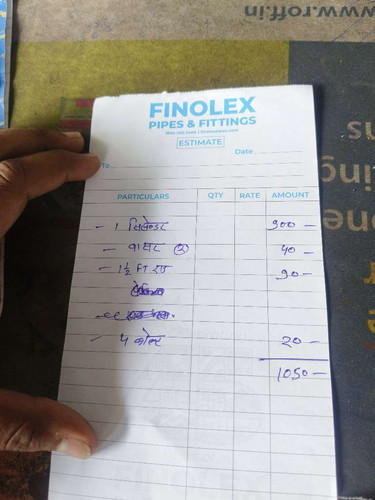 www.roff.in
FINOLEX
PIPES & FITTINGS
ESTIMATE
Date
To
PARTICULARS QTY RATE AMOUNT
- 1 900 -
- वाशर ② 40 -
- 1½ FT 90 -
- 4 बोल्ट 20 -
1050 -